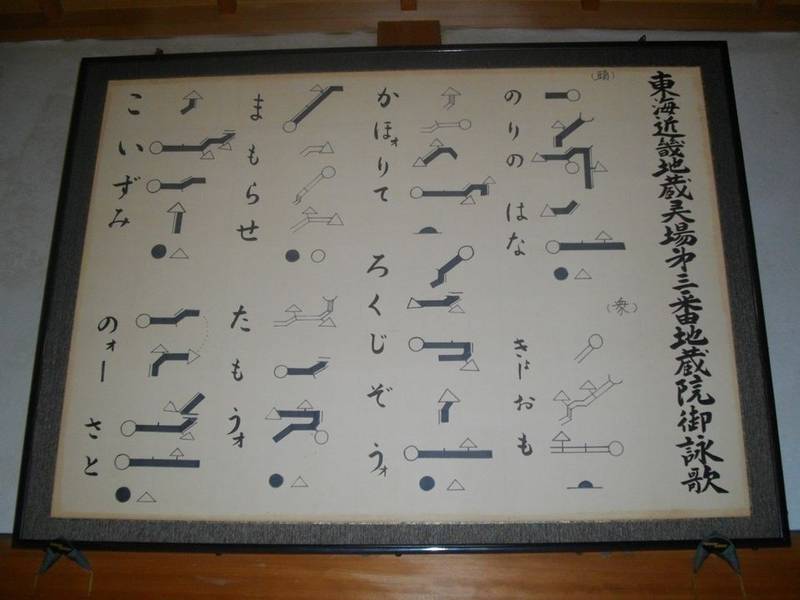 東海近畿地蔵灵場第三番地蔵院御詠歌
(頭)
のりの はな
(衆)
きょおも
かほォりて
ろくじぞうォ
まもらせ
たもうォ
こいずみ
のォー さと